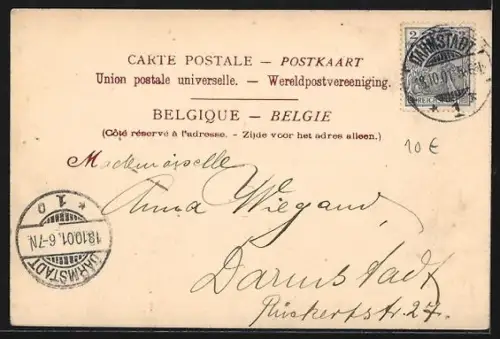 CARTE POSTALE — POSTKAART
Union postale universelle. — Wereldpostvereeniging.
BELGIQUE — BELGIE
(Côté réservé à l'adresse. - Zijde voor het adres alleen.)
2
REICHSPOST
DARMSTADT
18.10.01.
* 1
10 €
Mademoiselle
Anna Wiegand,
Darmstadt
Rückertstr. 27.
* 1 D
18.10.01. 6-7N.
DARMSTADT